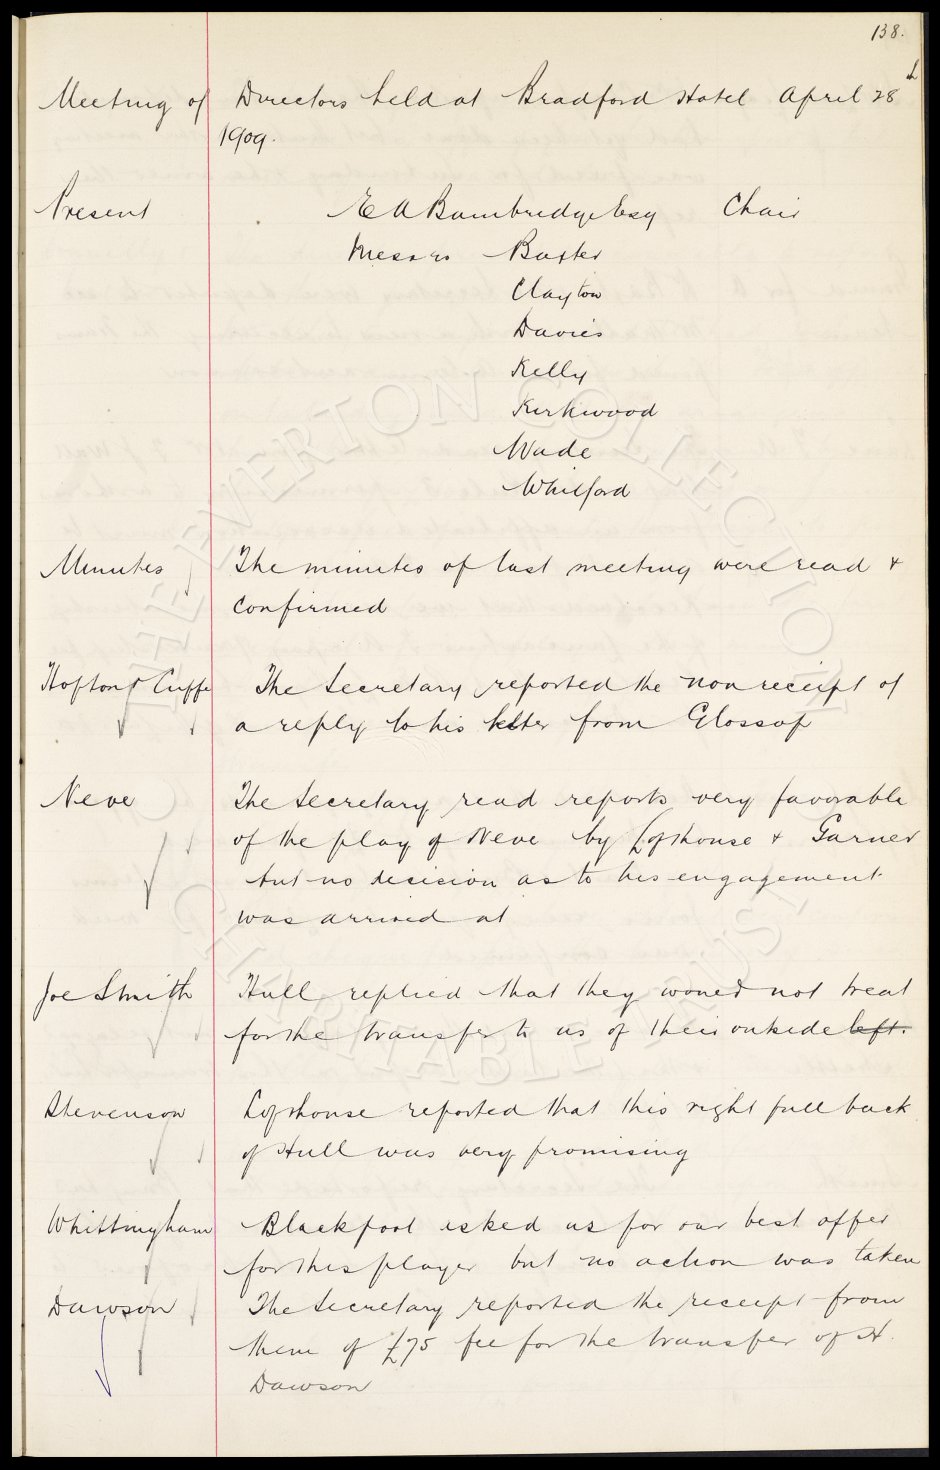 138.
Meeting of Directors held at Bradford Hotel April 28
1909.
Present E A Bainbridge Esq Chair
Messrs Baxter
Clayton
Davies
Kelly
Kirkwood
Wade
Whitford
Minutes The minutes of last meeting were read &
confirmed
Hofton & Cuffe The Secretary reported the non receipt of
a reply to his letter from Glossop
Neve The Secretary read reports very favorable
of the play of Neve by Lofthouse & Garner
but no decision as to his engagement
was arrived at
Joe Smith Hull replied that they would not treat
for the transfer to us of their outside left.
Stevenson Lofthouse reported that this right full back
of Hull was very promising
Whittingham Blackpool asked us for our best offer
for this player but no action was taken
Dawson The Secretary reported the receipt from
them of £75 fee for the transfer of H.
Dawson
THE EVERTON COLLECTION
CHARITABLE TRUST